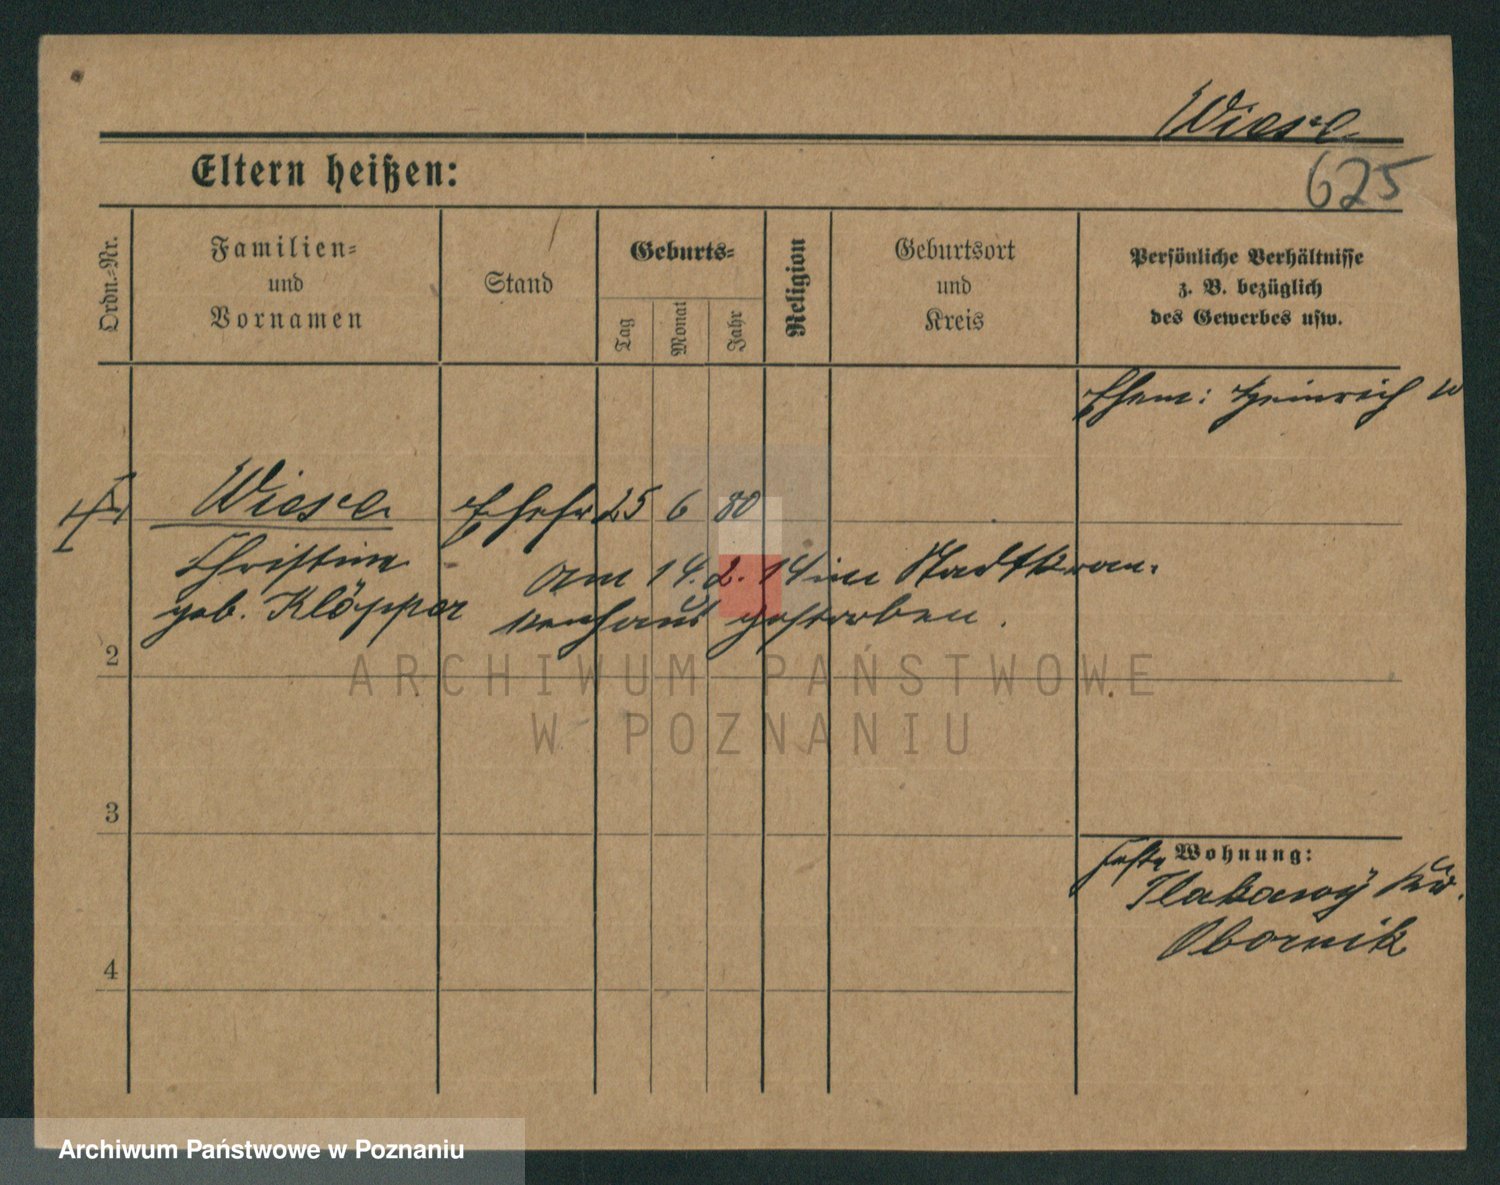 Wiese
Eltern heißen:
625
Ordn.-Nr.
Familien-
und
Vornamen
Stand
Geburts-
Tag
Monat
Jahr
Religion
Geburtsort
und
Kreis
Persönliche Verhältnisse
z. B. bezüglich
des Gewerbes usw.
Ehem: Heinrich W
Wiese Ehefr 25 6 80
Christine
geb. Klöpper
Am 14. 2. 14 im Stadtkran-
kenhaus gestorben.
2
3
4
Wohnung:
Kr.
Obornik
ARCHIWUM PAŃSTWOWE
W POZNANIU
Archiwum Państwowe w Poznaniu